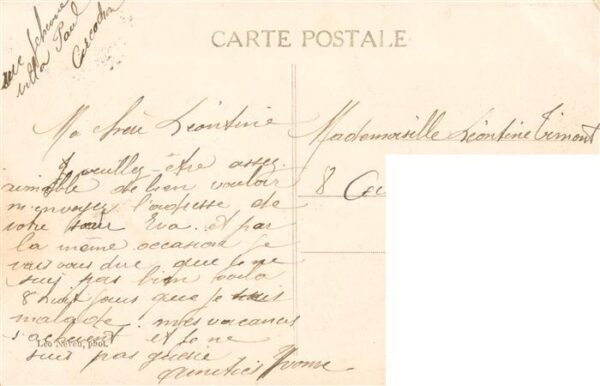 rue
villa Paul
CARTE POSTALE
Ma chèr Léontine
veuillez être assez
aimable de bien vouloir
m'envoyez l'adresse de
votre sœur Eva et par
la même occasion je
vais vous dire que je ne
suis pas bien voila
8 huit jours que je suis
malade. mes vacances
s'achevent et je ne
suis pas guérie
Amitiés Yvonne
Léo Neveu, phot.
Mademoiselle Léontine Timont
8